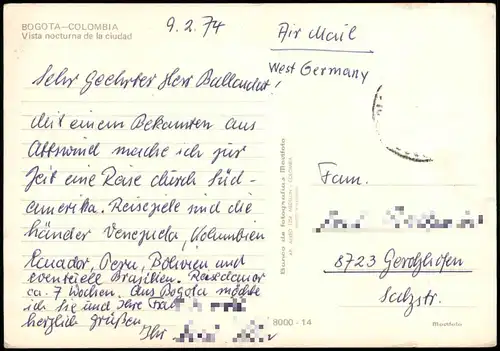 BOGOTA-COLOMBIA
Vista nocturna de la ciudad
9.2.74
Air Mail
West Germany
Sehr Geehrter Herr
Mit einem Bekannten aus
mache ich zur
Zeit eine Reise durch Süd-
amerika. Reiseziele sind die
Länder Venezuela, Kolumbien
Ecuador, Peru, Bolivien und
eventuell Brasilien. Reisedauer
ca. 7 Wochen. Aus Bogota möchte
ich Sie und Ihre Frau
herzlich grüßen
Ihr
Fam.
8723 Gerolzhofen
Salzstr.
8000-14
Movifoto